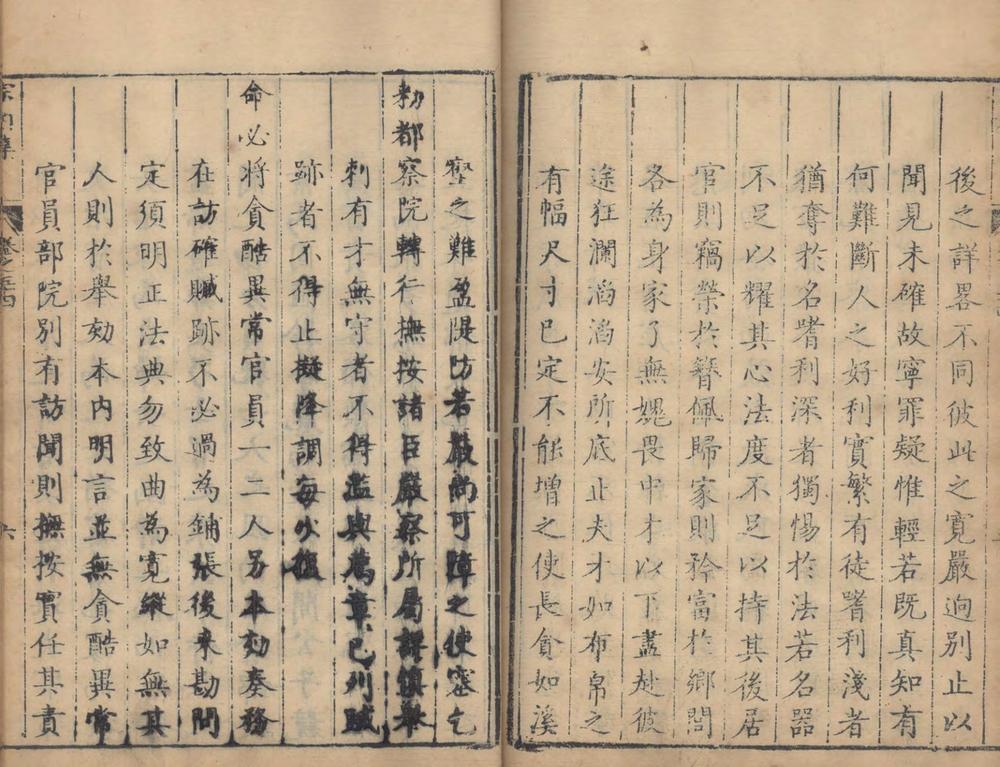 後之詳畧不同彼此之寛嚴逈別止以
聞見未確故寧罪疑惟輕若既真知有
何難斷人之好利實繁有徒嗜利淺者
猶奪於名嗜利深者獨惕於法若名器
不足以耀其心法度不足以持其後居
官則竊榮於簪佩歸家則矜富於鄉閭
各為身家了無媿畏中才以下盡趁彼
途狂瀾滔滔安所底止夫才如布帛之
有幅尺寸已定不能增之使長貪如溪
壑之難盈隄防若嚴尚可障之使塞乞
勑都察院轉行撫按諸臣嚴察所屬謹慎舉
刺有才無守者不得濫與薦章已列贓
跡者不得止擬降調每
命必將貪酷異常官員一二人另本劾奏務
在訪確贓跡不必過為鋪張後來勘問
定須明正法典勿致曲為寬縱如無其
人則於舉劾本內明言並無貪酷異常
官員部院別有訪聞則撫按實任其責
卷之
六